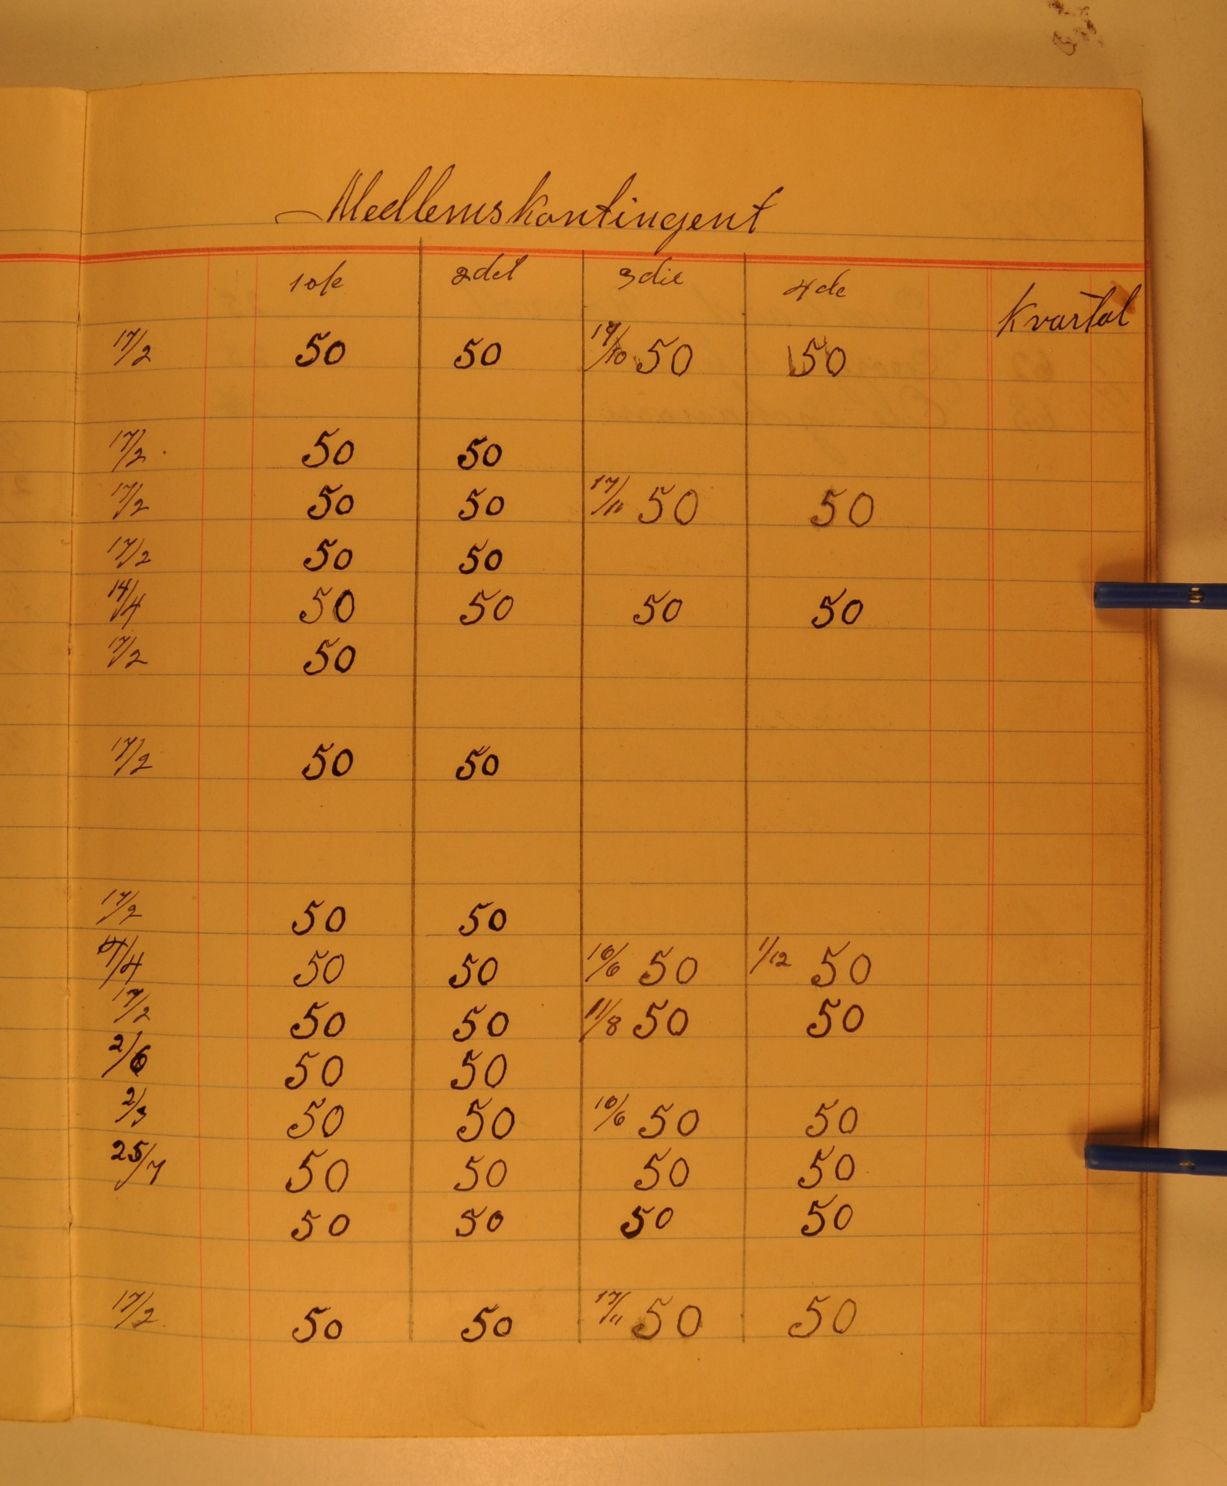 Medlemskontingent
1ste 2det 3die 4de Kvartal
17/2 50 50 19/10 50 50
17/2 50 50
17/2 50 50 17/11 50 50
17/2 50 50
14/4 50 50 50 50
17/2 50
17/2 50 50
17/2 50 50
4/4 50 50 16/6 50 1/12 50
17/2 50 50 11/8 50 50
2/6 50 50
2/3 50 50 16/6 50 50
25/7 50 50 50 50
50 50 50 50
17/2 50 50 17/11 50 50